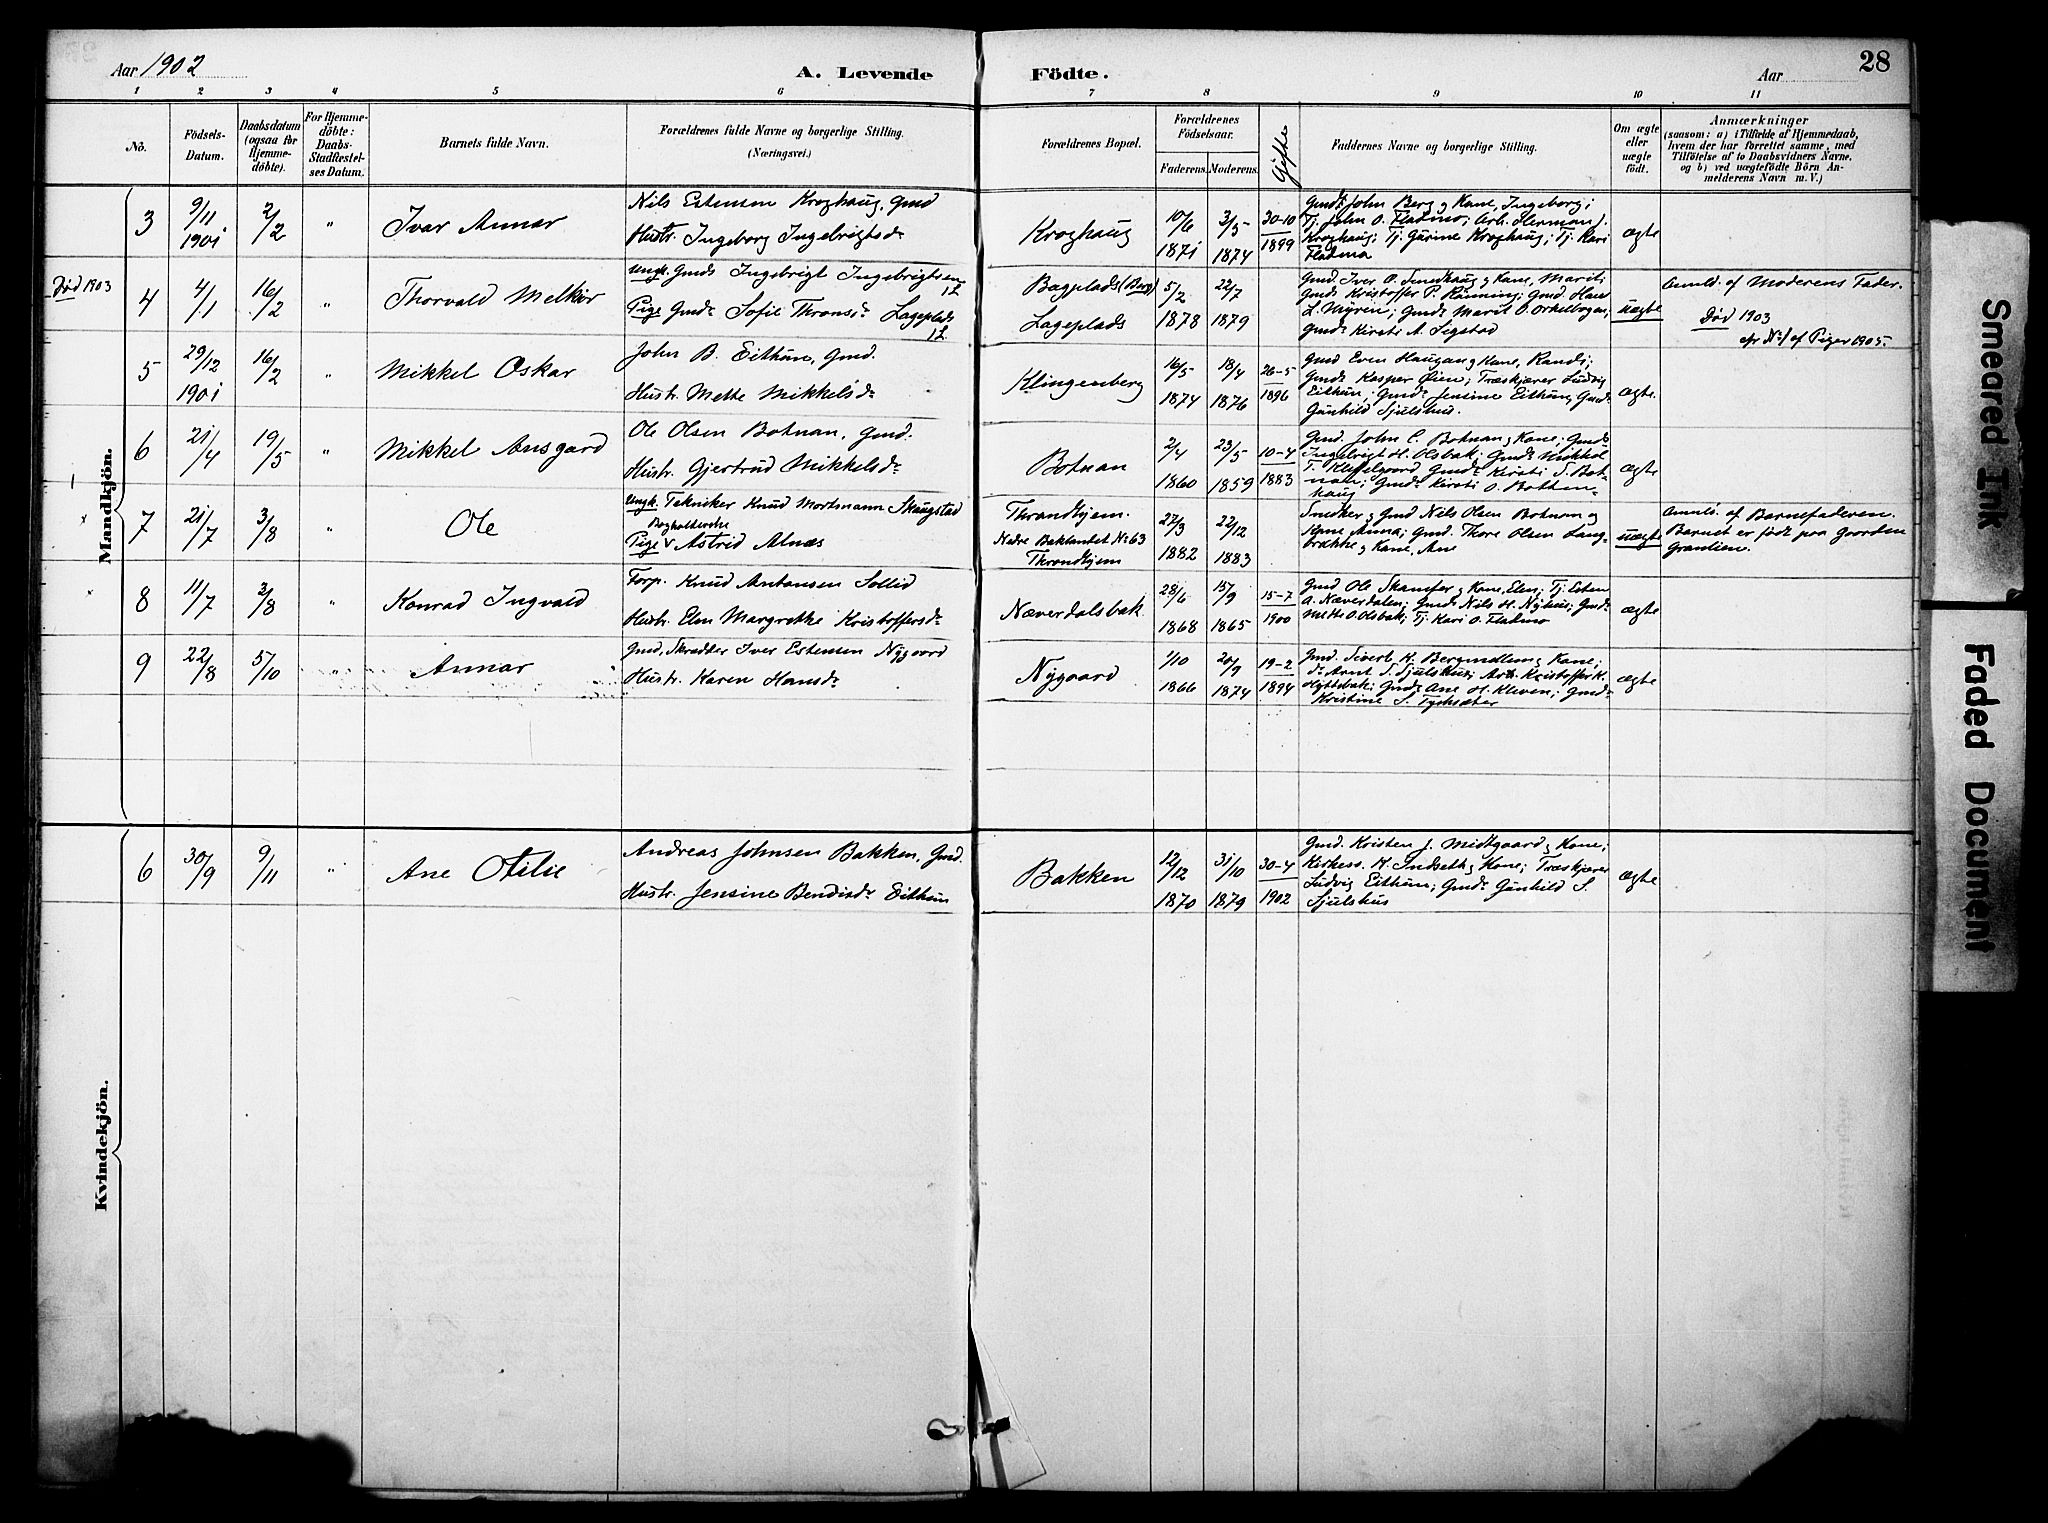 Aar 1902
A. Levende Födte.
Aar
28
1 2 3 4 5 6 7 8 9 10 11
Nö.
Födsels-
Datum.
Daabsdatum
(ogsaa for
Hjemme-
döbte).
For Hjemme-
döbte:
Daabs-
Stadfæstel-
ses Datum.
Barnets fulde Navn.
Forældrenes fulde Navne og borgerlige Stilling.
(Næringsvei.)
Forældrenes Bopæl.
Forældrenes
Födselsaar.
Faderens. Moderens.
Gifte
Faddernes Navne og borgerlige Stilling.
Om ægte
eller
uægte
födt.
Anmærkninger
(saasom: a) i Tilfælde af Hjemmedaab,
hvem der har forrettet samme, med
Tilföielse af to Daabsvidners Navne,
og b) ved uægtefödte Börn An-
melderens Navn m. V.)
Mandkjön.
3 9/11 1901 2/2 " Ivar Annar
Nils Estensen Kroghaug, Gmd
Hustr. Ingeborg Ingebrigtsdr
Kroghaug 10/6 1871 3/5 1874 30-10 1899
Gmd. John Berg og Kone, Ingeborg;
Tj. John O. Fladmo; Arb. Herman J.
Kroghaug; Tj. Gurine Kroghaug; Tj. Kari
Fladmo
ægte
Død 1903
4 4/1 16/2 " Thorvald Melkior
Ungk. Gmds Ingebrigt Ingebrigtsen
Pige Gmdr Sofie Thronsdr Lageplads
Bagplads (Berg)
Lageplads
5/2 1878 22/7 1879
Gmd Iver O. Smedhaug og Kone, Marit;
Gmds Kristoffer P. Rønning; Gmd. Hans
L. Myren; Gmdr Marit O. Orkelbogen;
Gmdr Kirsti A. Segstad
uægte
Anmld. af Moderens Fader.
Død 1903
cfr No 1 af Piger 1905.
5 29/12 1901 16/2 Mikkel Oskar
John B. Eithun, Gmd.
Hustr. Mette Mikkelsdr
Klingenberg 16/5 1874 18/4 1876 26-5 1896
Gmd Even Haugan og Kone, Randi;
Gmds Kasper Øien; Træskjærer Ludvig
Eithun; Gmdr Jensine Eithun; Gmdr
Gunhild Sjulshus.
ægte.
6 21/4 19/5 " Mikkel Ansgard
Ole Olsen Botnan, Gmd.
Hustr. Gjertrud Mikkelsdr
Botnan 2/4 1860 23/5 1859 10-4 1883
Gmd. John C. Botnan og Kone; Gmds
Ingebrigt H. Olsbak; Gmds Mikkel
T. Kleppgaard Gmdr Kirsti S. Bot-
nan; Gmdr Kirsti O. Botten-
haug
ægte
7 21/7 3/8 " Ole
Ungk. Tekniker Knud Mortmann Skaugstad
Bogholderske
Pige v Astrid Alnæs
Throndhjem.
Nedre Baklandet No 63
Throndhjem
27/3 1882 22/12 1883
Snedker og Gmd Nils Olsen Botnan og
Kone Anna; Gmd. Thore Olsen Lang-
brække og Kone, Ane
uægte
Anmld. af Barnefaderen.
Barnet er født paa Gaarden
Granlien.
8 11/7 3/8 " Konrad Ingvald
Forp. Knud Antonsen Sollid
Hustr. Elen Margrethe Kristoffersdr
Næverdalsbak 28/6 1868 15/9 1865 15-7 1900
Gmd Ole Skamfer og Kone, Elen; Tj. Esten
A. Næverdalen; Gmds Nils H. Nyhus; Gmdr
Mette O. Olsbak; Tj. Kari O. Fladmo
ægte
9 22/8 5/10 Annar
Gmd, Skrædder Iver Estensen Nygaard
Hustr. Karen Hansdr
Nygaard 1/10 1866 20/9 1874 19-2 1894
Gmd. Sivert H. Bergmellem og Kone;
dr Arnt S. Sjulshus; Arb. Kristoffer K.
Hyttebak; Gmdr Ane H. Kleven; Gmdr
Kristine S. Tyshæter
ægte
Kvindekjön.
6 30/9 9/11 " Ane Otilie
Andreas Johnsen Bakken, Gmd.
Hustr. Jensine Bendixdr Eithun
Bakken 12/12 1870 31/10 1879 30-4 1902
Gmd. Kristen J. Midtgaard og Kone;
Kirkess. H. Indseth og Kone; Træskjærer
Ludvig Eithun; Gmdr Gunhild S.
Sjulshus
ægte
Smeared Ink
Faded Document